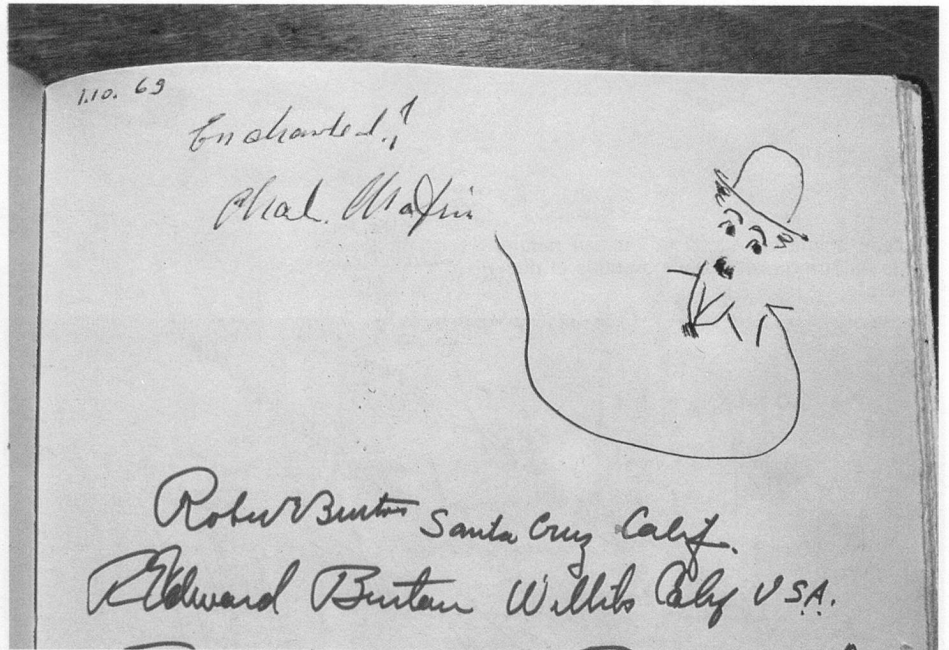 1.10. 69
Enchanted!
Chal. Chaplin
Robert Burton Santa Cruz Calif.
R Edward Burton Willits Calif USA.